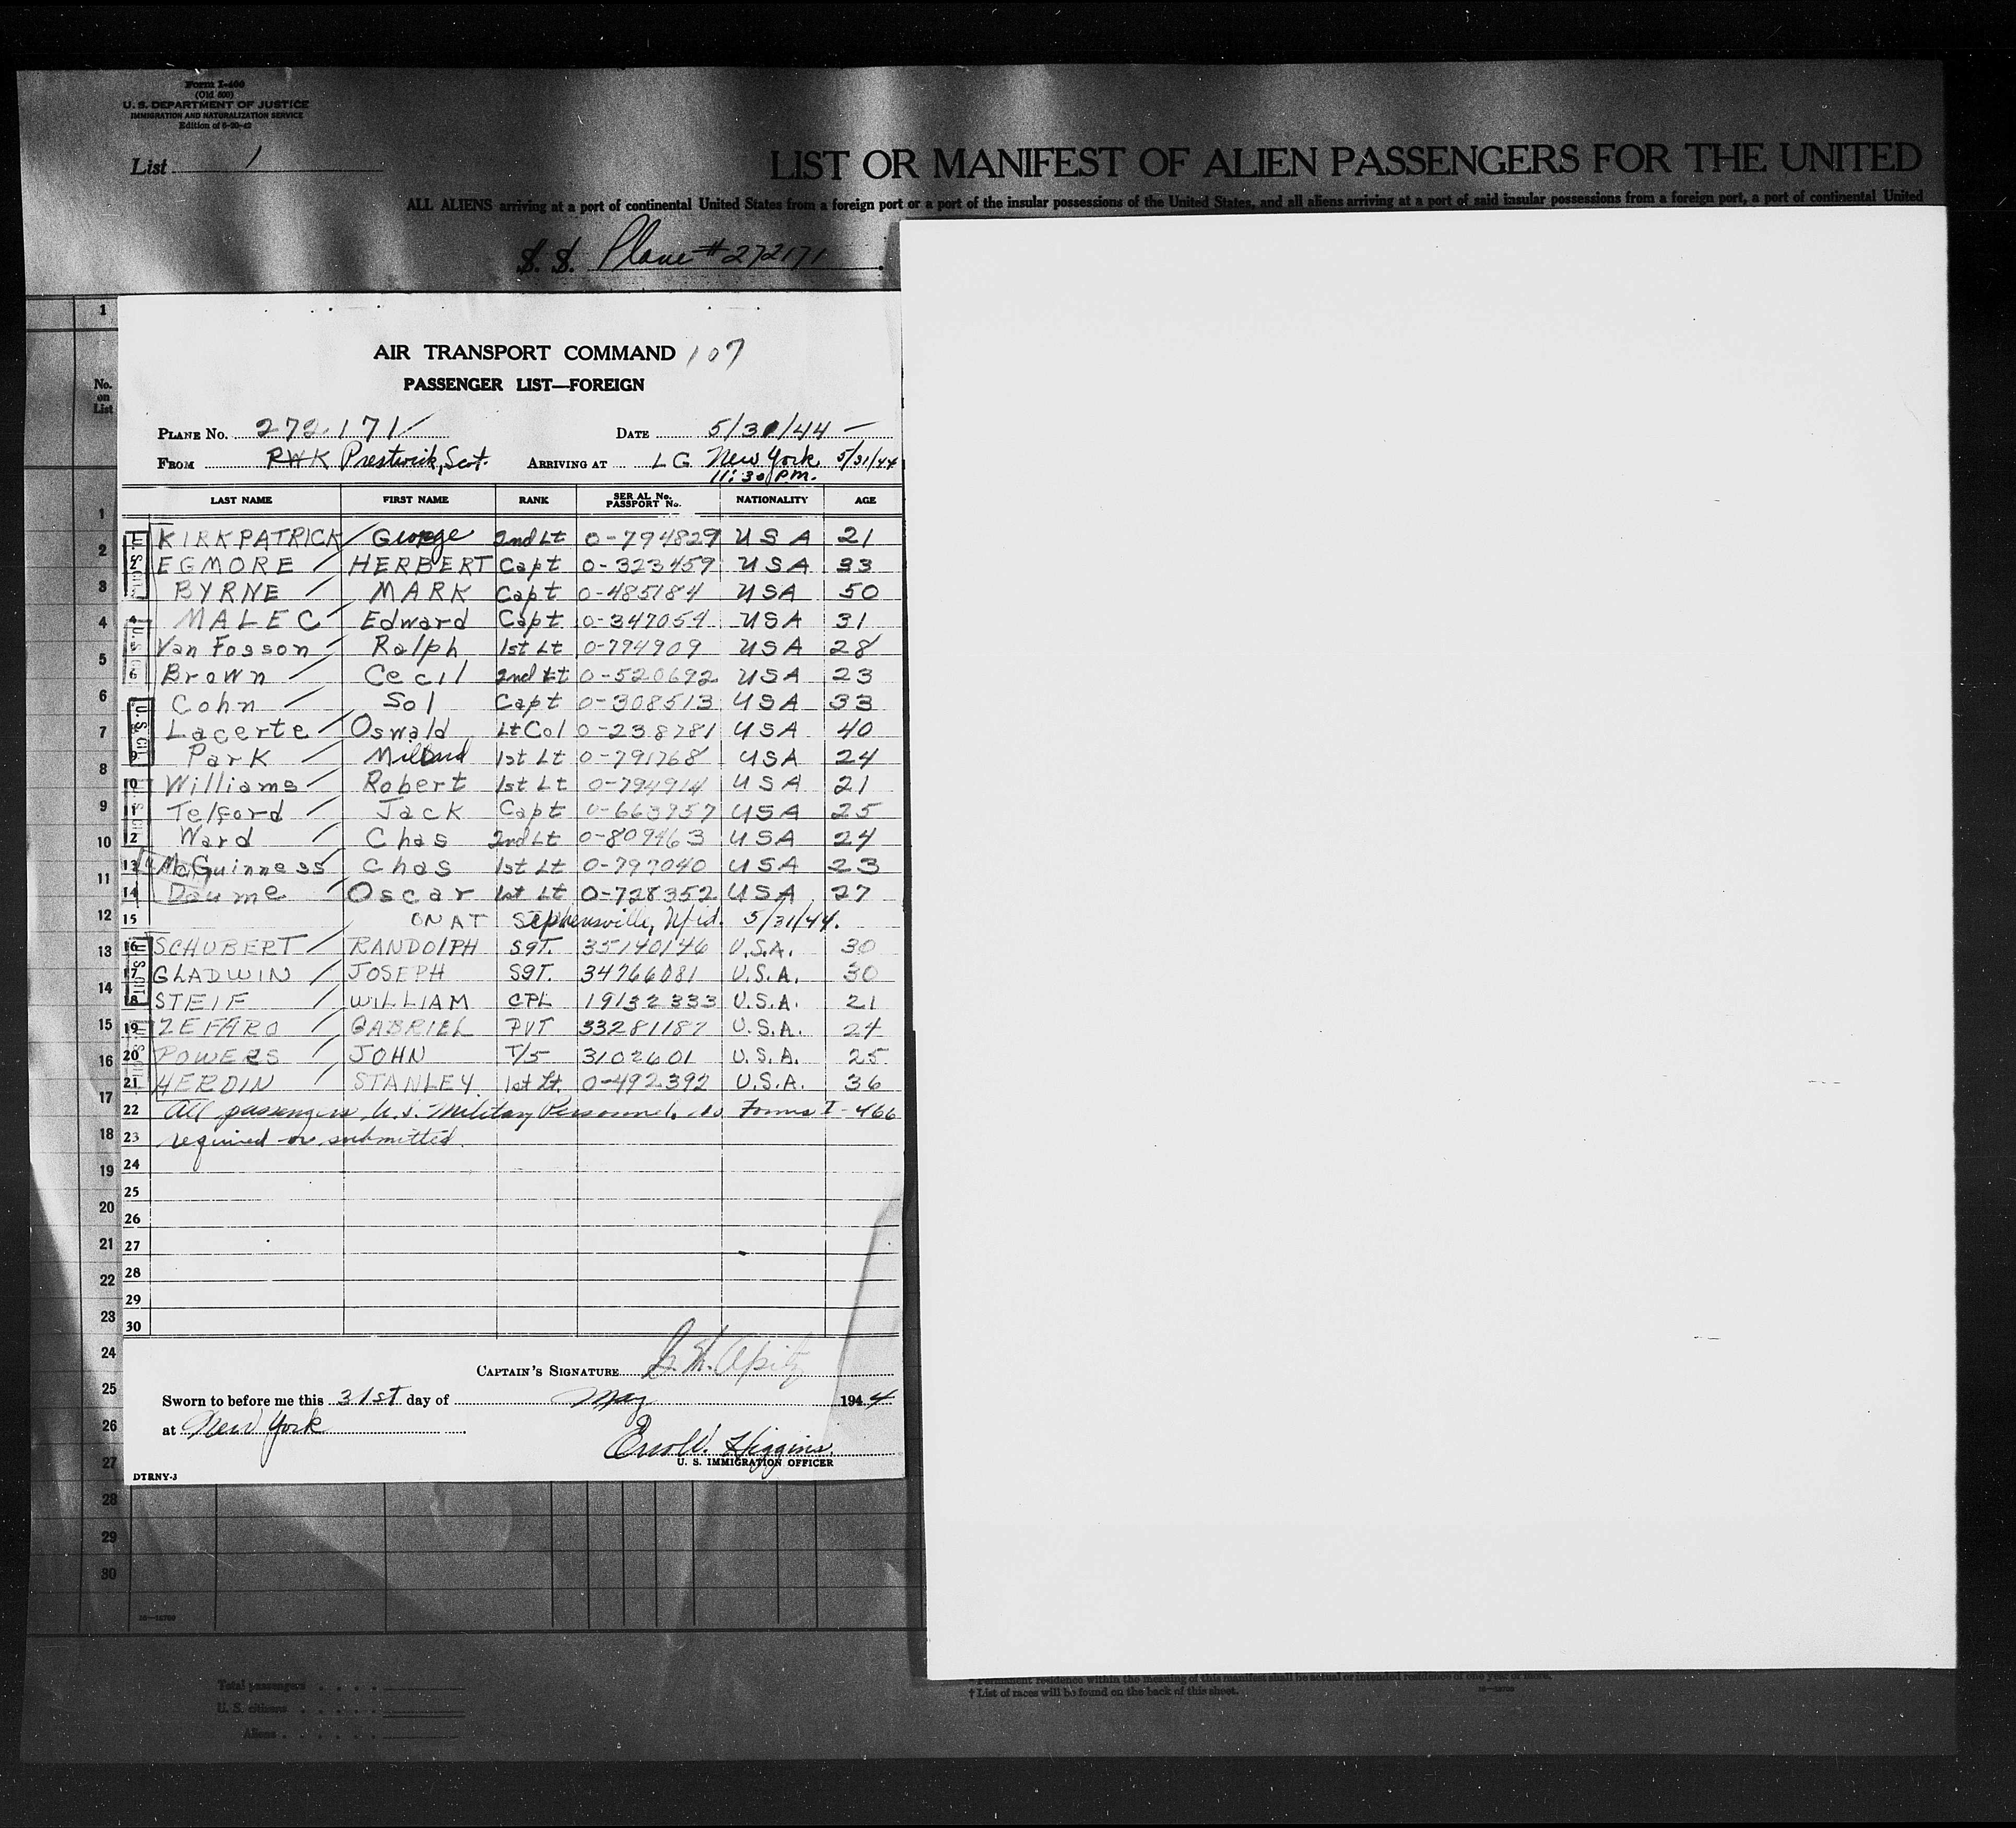 Form I-400
(Old 600)
U. S. DEPARTMENT OF JUSTICE
IMMIGRATION AND NATURALIZATION SERVICE
Edition of 6-20-42
List 1
LIST OR MANIFEST OF ALIEN PASSENGERS FOR THE UNITED
ALL ALIENS arriving at a port of continental United States from a foreign port or a port of the insular possessions of the United States, and all aliens arriving at a port of said insular possessions from a foreign port, a port of continental United
S. S. Plane #272171
No. on List
AIR TRANSPORT COMMAND 107
PASSENGER LIST—FOREIGN
PLANE No. 272171 DATE 5/31/44
FROM RWK Prestwick, Scot. ARRIVING AT LG New York 5/31/44
11:30 P.M.
LAST NAME FIRST NAME RANK SERIAL No. PASSPORT No. NATIONALITY AGE
KIRKPATRICK George 2nd Lt 0-794829 USA 21
EGMORE HERBERT Capt 0-323459 USA 33
BYRNE MARK Capt 0-485184 USA 50
4 MALEC Edward Capt 0-347054 USA 31
Van Fosson Ralph 1st Lt 0-794909 USA 28
6 Brown Cecil 2nd Lt 0-520692 USA 23
Cohn Sol Capt 0-308513 USA 33
Lacerte Oswald Lt Col 0-238781 USA 40
9 Park Millard 1st Lt 0-791768 USA 24
10 Williams Robert 1st Lt 0-794914 USA 21
11 Telford Jack Capt 0-663957 USA 25
12 Ward Chas 2nd Lt 0-809463 USA 24
13 McGuinness Chas 1st Lt 0-797040 USA 23
14 Daume Oscar 1st Lt 0-728352 USA 27
15 ON AT Stephensville, Nfld. 5/31/44.
16 SCHUBERT RANDOLPH SGT. 35140146 U.S.A. 30
17 GLADWIN JOSEPH SGT. 34766081 U.S.A. 30
18 STEIF WILLIAM CPL 19132333 U.S.A. 21
19 ZEFARO GABRIEL PVT 33281187 U.S.A. 24
20 POWERS JOHN T/5 3102601 U.S.A. 25
21 HERDIN STANLEY 1st Lt. 0-492392 U.S.A. 36
22 All passengers U.S. Military Personnel, no Forms I-466
23 required or submitted.
24
25
26
27
28
29
30
CAPTAIN'S SIGNATURE Apitz
Sworn to before me this 31st day of May 1944
at New York
Higgins
U. S. IMMIGRATION OFFICER
DTRNY-3
Total passengers
U. S. citizens
Aliens
* Permanent residence within the meaning of this manifest shall be actual or intended residence of one year or more.
† List of races will be found on the back of this sheet.